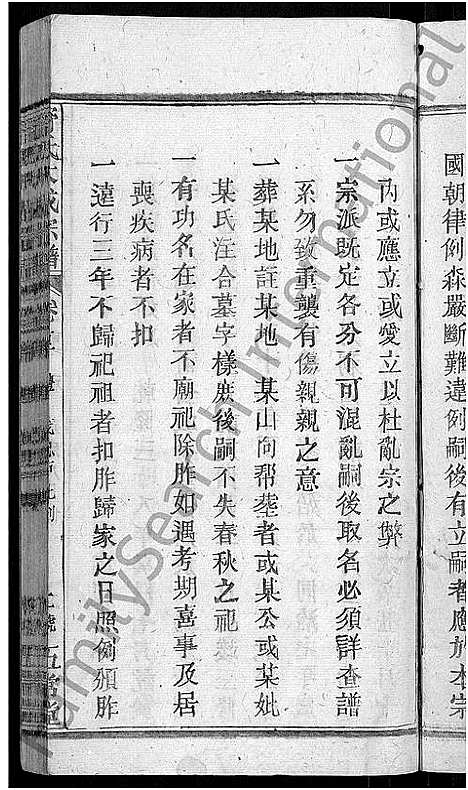 國朝律例森嚴斷難違例嗣後有立嗣者應於本宗
內或應立或愛立以杜亂宗之弊
一宗派既定各分不可混亂嗣後取名必須詳查譜
系勿致重襲有傷親親之意
一葬某地註某地某山向帮塟者或某公或某妣
某氏注合墓字樣庶後嗣不失春秋之祀
一有功名在家者不廟祀除胙如遇考期喜事及居
喪疾病者不扣
一遠行三年不歸祀祖者扣胙歸家之日照例頒胙
氏大成宗譜
五常堂
FamilySearch International